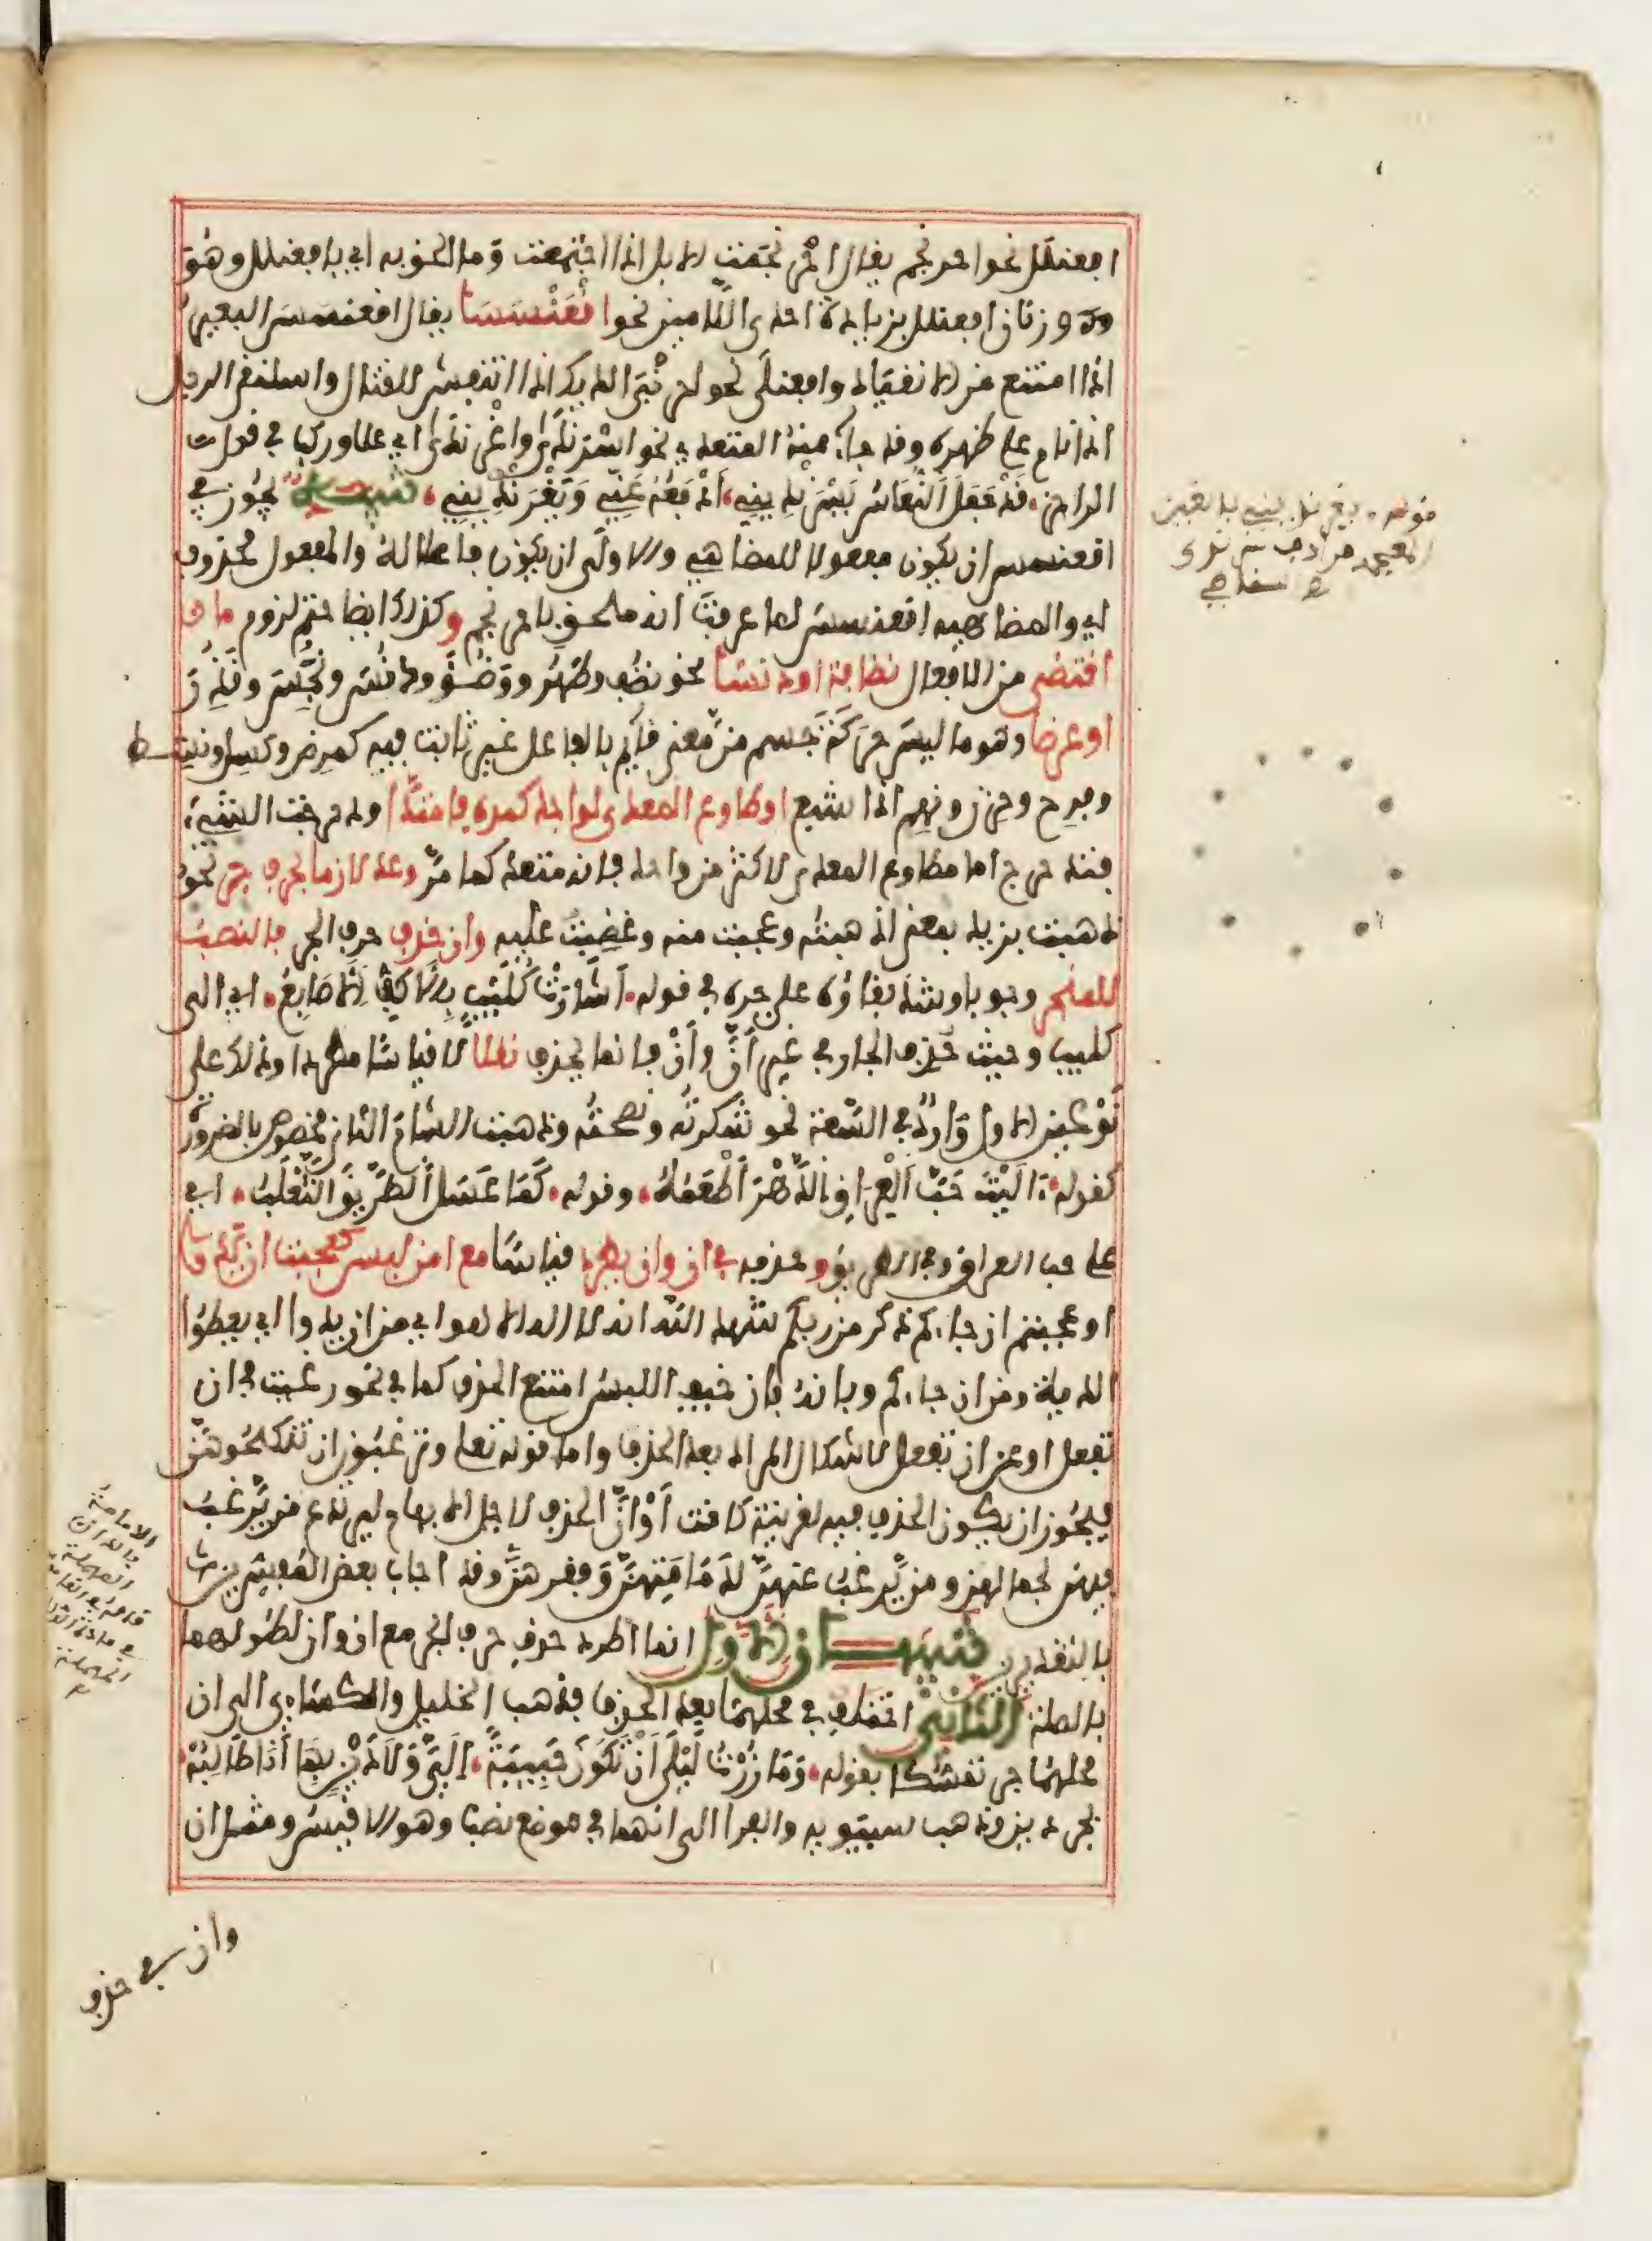 افعنلل نحو احرنجم يقال احرنجمت الابل اذا اجتمعت وما الحق به اي بافعنلل وهو
وزنان افعنلل بزيادة احدى اللامين نحو اقعنسسا يقال اقعنسس البعير
اذا امتنع من الانقياد وافعنلى نحو احرنبى الديك اذا انتفش للقتال واسلنقى الرجل
اذا نام على ظهره وقد جاء منه المتعدي نحو اسرندى واغرندى اي علا وركب في قول
الراجز، قد جعل النعاس يسرنديني، ادفعه عني ويغرنديني، تنبيه يجوز في
اقعنسس ان يكون مفعولا للمضاهي والاولى ان يكون فاعلا له والمفعول محذوف
اي والمضاهيه اقعنسس لما عرفت انه ملحق باحرنجم وكذلك ايضا حتم لزوم ما
اقتضى من الافعال نظافة او دنسا نحو نظف وطهر ووضؤ ودنس ونجس وقذر
او عرضا وهو ما ليس حركة جسم من معنى قائم بالفاعل غير ثابت فيه كمرض وكسل ونشط
وفرح وحزن ونهم اذا شبع او طاوع المعدى لواحد كمده فامتدا ودحرجت الشيء
فتدحرج اما مطاوع المعدى لاكثر من واحد فانه متعد كما مر وعد لازما بحرف جر نحو
ذهبت بزيد بمعنى اذهبته وعجبت منه وغضبت عليه وان حذف حرف الجر فالنصب
للمنجر وجوبا وشذ بقاؤه على جره في قوله، اشارت كليب بالاكف الاصابع، اي الى
كليب وحيث حذف الجار في غير ان وأن فانما يحذف نقلا لا قياسا مطردا وذلك على
نوعين الاول وارد في السعة نحو شكرته ونصحته وذهبت الشام الثاني مخصوص بالضرورة
كقوله، آليت حب العراق الدهر اطعمه، وقوله، كما عسل الطريق الثعلب، اي
على حب العراق وفي الطريق وحذفه في ان وان يطرد قياسا مع امن لبس كعجبت ان يدوا
او عجبتم ان جاءكم ذكر من ربكم شهد الله انه لا اله الا هو اي من ان يدوا اي يعطوا
الدية ومن ان جاءكم وبانه فان خيف اللبس امتنع الحذف كما في نحو رغبت في ان
تفعل او عن ان تفعل لاشكال المراد بعد الحذف واما قوله تعلى وترغبون ان تنكحوهن
فيجوز ان يكون الحذف فيه لقرينة كانت او ان الحذف لاجل الابهام ليرتدع من يرغب
فيهن لجمالهن ومن يرغب عنهن لدمامتهن وفقرهن وقد اجاب بعض المفسرين
بالتقديرين تنبيهان الاول انما اطرد حذف حرف الجر مع ان وان لطولهما
بالصلة الثاني اختلف في محلهما بعد الحذف فذهب الخليل والكسائي الى ان
محلهما جر تمسكا بقوله، وما زرت ليلى ان تكون حبيبة، الي ولا دين بها انا طالبه
بجر دين وذهب سيبويه والفرا الى انهما في موضع نصب وهو الاقيس ومثل ان
وان في حذف
قوله، يغرنديني بالغين
المعجمة مرادف يسرندى
الامامة
بالدال
المهملة
المهملة